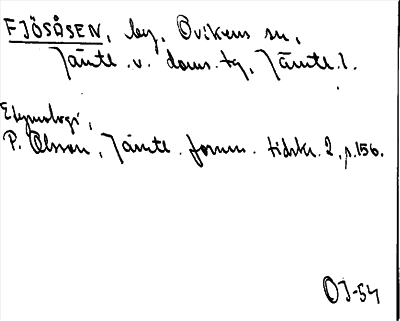 FJÖSÅSEN, by, Ovikens sn,
Jämtl. v. doms. tg, Jämtl. l.
Etymologi,
P. Olsson, Jämtl. fornm. tidskr. 2, s. 156.
OJ-54